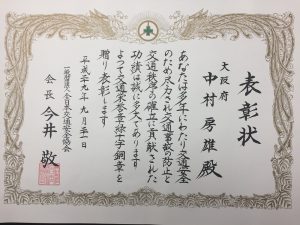 表彰状
大阪府
中村房雄殿
あなたは多年にわたり交通安全
のため尽力され交通事故の防止と
交通秩序の確立に貢献された
功績は誠に多大であります
よって交通栄誉章緑十字銅章を
贈り表彰します
平成二十九年九月二十一日
一般財団法人全日本交通安全協会
会長 今井敬